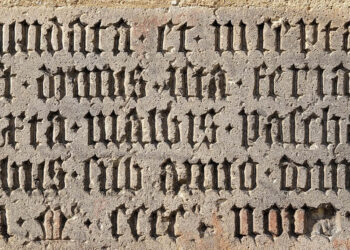 undata · et · incepta
t · domus · ista · feria
arta · walbis · pasche
bus · sub · anno · dom
· m · cccc · nono